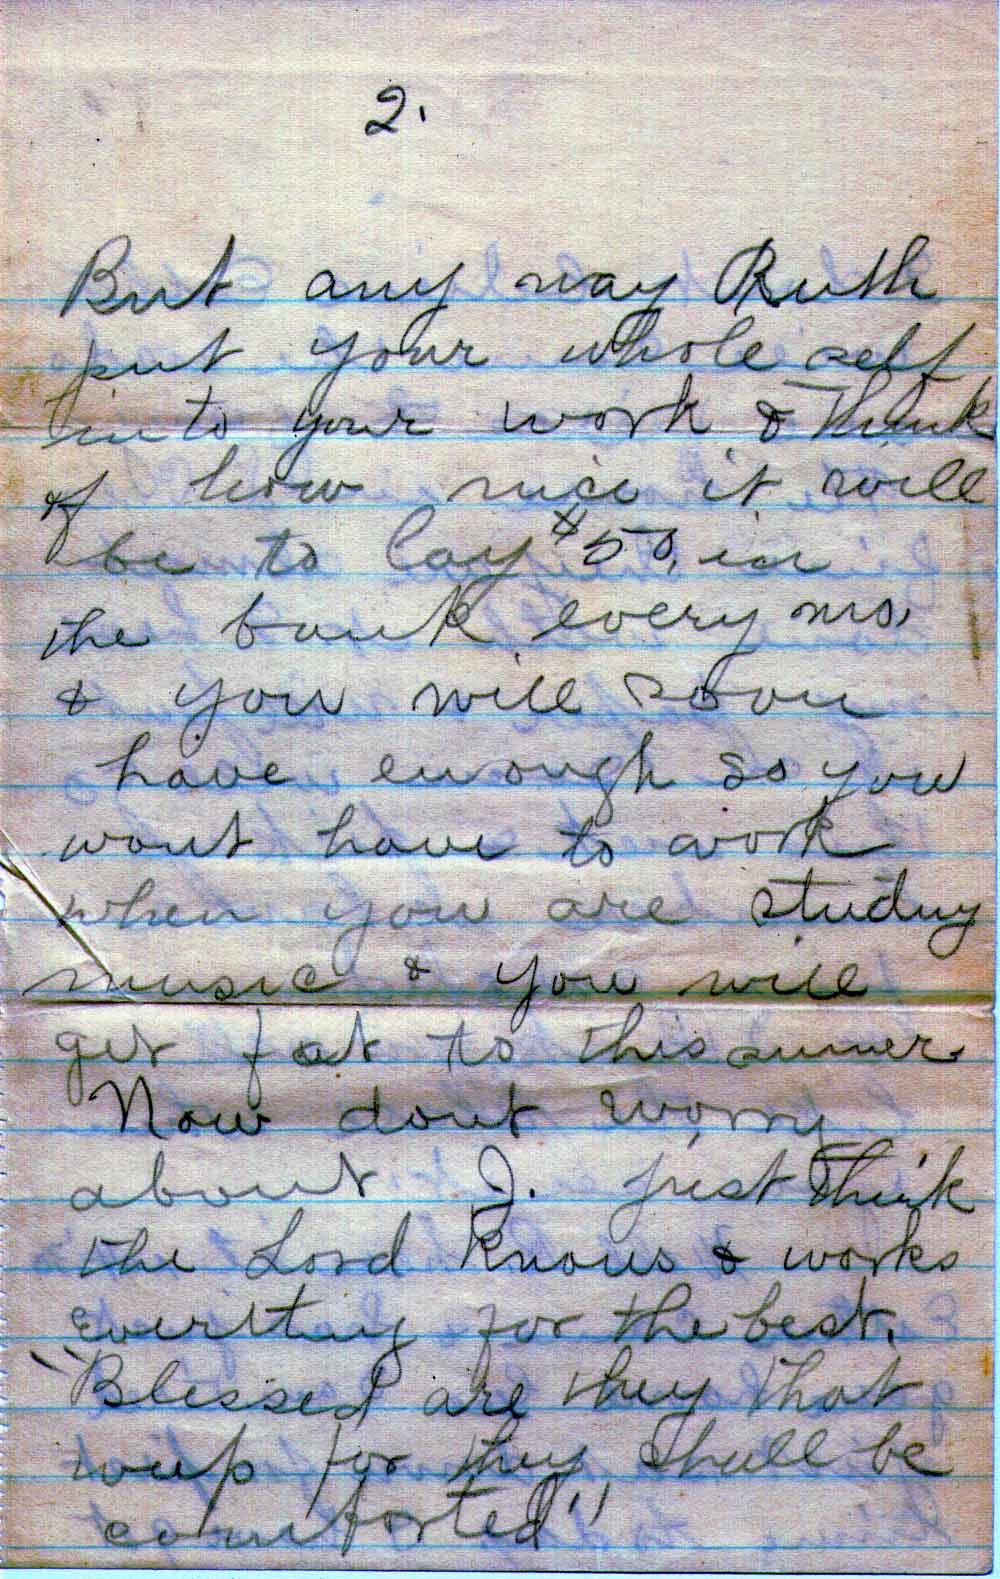 2.
But any way Ruth
put your whole self
into your work & think
of how nice it will
be to lay $50. in
the bank every mo.
& you will soon
have enough so you
wont have to work
when you are studing
music & you will
get fat to this sumer
Now dont worry
about J. just think
the Lord knows & works
everlthing for the best.
"Blessed are they that
weep for they shall be
comforted"